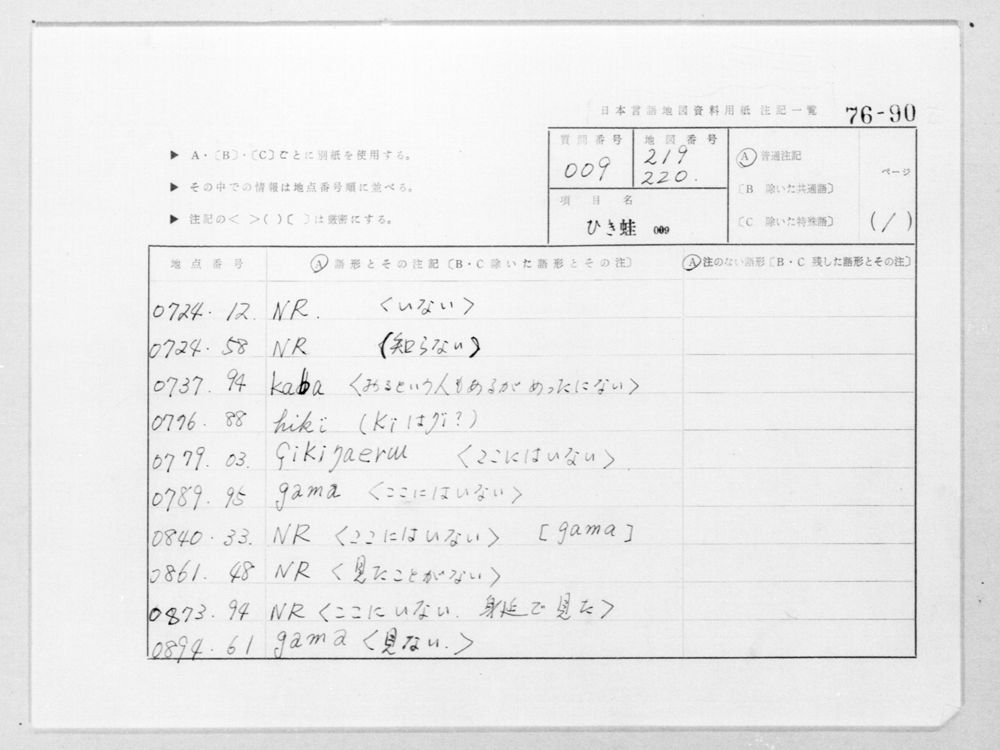 日本言語地図資料用紙 注記一覧 76-90
▶ A・〔B〕・〔C〕ごとに別紙を使用する。
▶ その中での情報は地点番号順に並べる。
▶ 注記の< >( )〔 〕は厳密にする。
質問番号 009
地図番号 219 220.
項目名 ひき蛙 009
Ⓐ 普通注記
〔B 除いた共通語〕
〔C 除いた特殊語〕
ページ (1)
地点番号 Ⓐ 語形とその注記〔B・C 除いた語形とその注〕 Ⓐ注のない語形〔B・C 残した語形とその注〕
0724. 12. NR. <いない>
0724. 58 NR (知らない)
0737. 94 kaba <おるという人もあるがめったにない>
0776. 88 hikï (kïはgï?)
0779. 03. çikiŋaerɯ <ここにはいない>
0789. 95 gama <ここにはいない>
0840. 33. NR <ここにはいない> [gama]
0861. 48 NR <見たことがない>
0873. 94 NR <ここにいない. 身延で見た>
0894. 61 gama <見ない.>